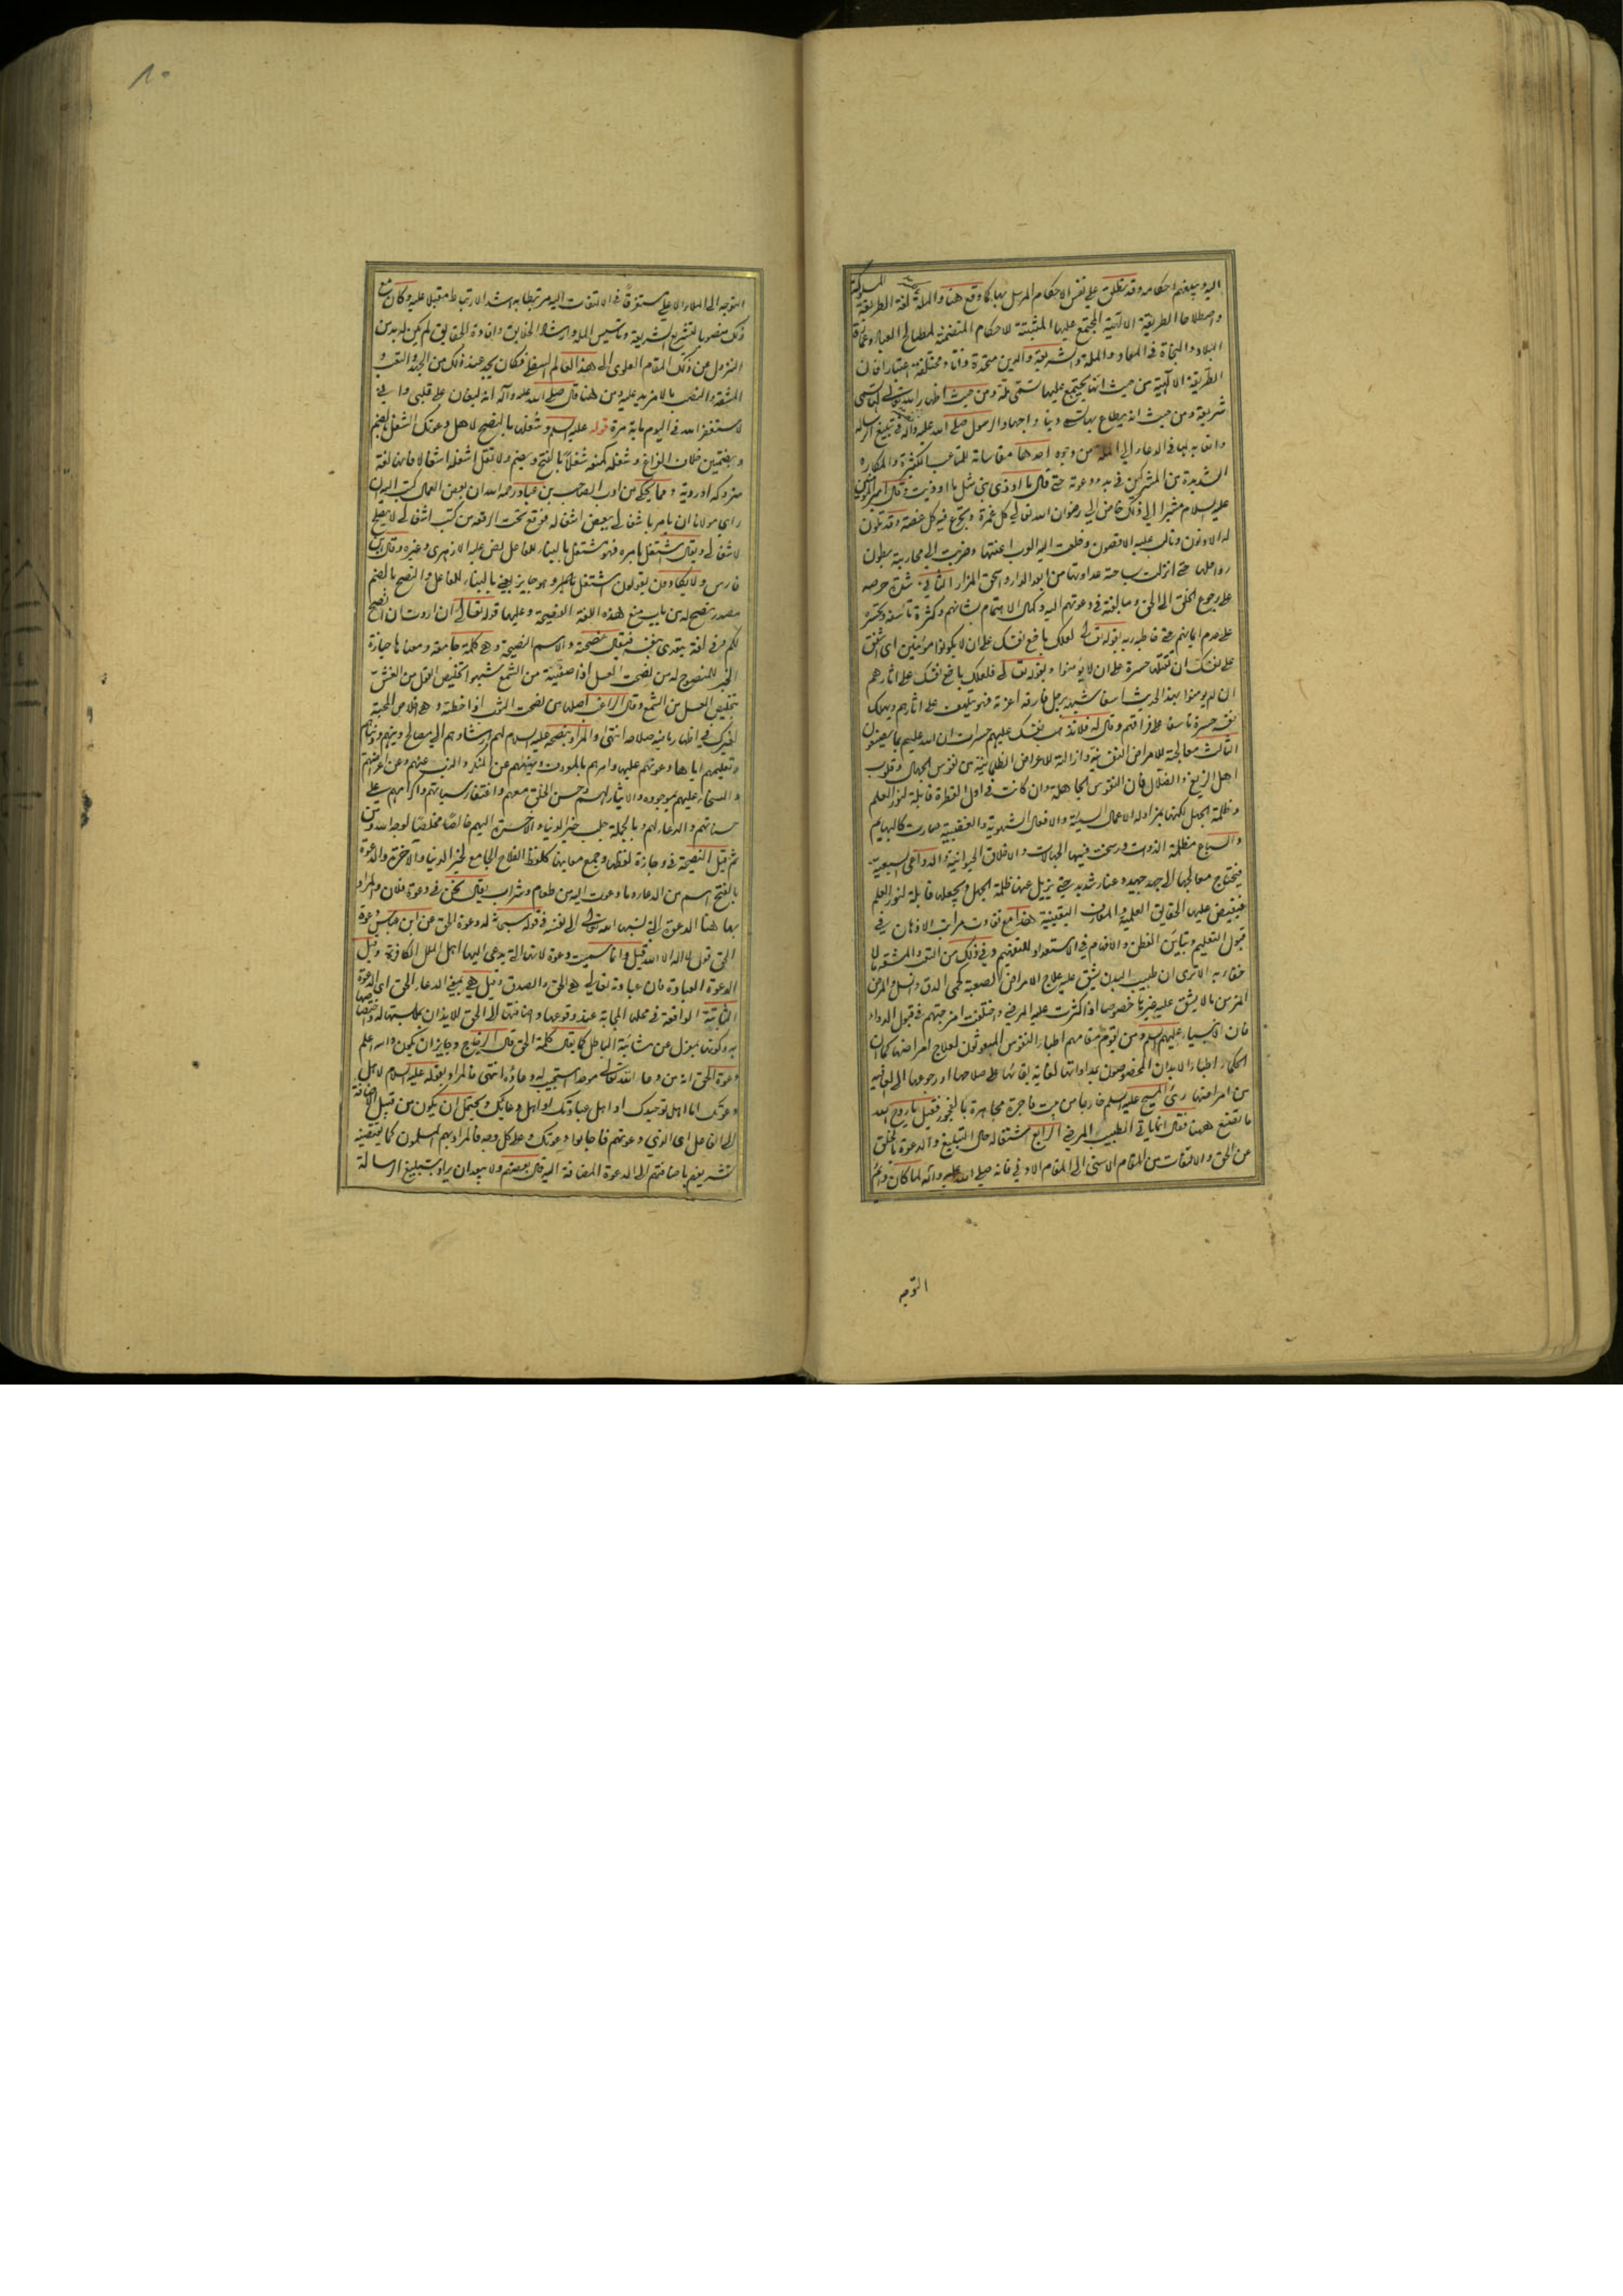 اليه ويبلغهم احكامه وقد يطلق على نفس الاحكام المرسل بها كما وقع هنا والملة لغة الطريقة
واصطلاحا الطريقة الالهية المجتمع عليها المثبتة للاحكام المتضمنة لمصالح العباد وعمارة
البلاد والنجاة في المعاد والملة والشريعة والدين متحدة ذاتا ومختلفة اعتبارا فان
الطريقة الالهية من حيث انها يجتمع عليها تسمى ملة ومن حيث اظهار الله تعالى لها تسمى
شريعة ومن حيث انه يطاع بها تسمى دينا واجهاد الرسول صلى الله عليه وآله في تبليغ الرسالة
واتعابه لها في الدعاء الى الملة من وجوه احدها مقاساته للمتاعب الكثيرة والمكاره
الشديدة من المشركين في بدو دعوته حتى قال ما اوذي نبي مثل ما اوذيت وقال امير المؤمنين
عليه السلام مشيرا الى ذلك خاض الى رضوان الله تعالى كل غمرة وتجرع فيه كل غصة وقد تلون
له الادنون وتألب عليه الاقصون وخلعت اليه العرب اعنتها وضربت الى محاربته بطون
رواحلها حتى انزلت بساحته عداوتها من ابعد الدار واسحق المزار الثاني شدة حرصه
على رجوع الخلق الى الحق ومبالغة في دعوتهم اليه وكمال الاهتمام بشانهم وكثرة تأسفه وتحسره
على عدم ايمانهم حتى خاطبه ربه بقوله تعالى لعلك باخع نفسك على ان لا يكونوا مؤمنين اي اشفق
على نفسك ان تقتلها حسرة على ان لا يؤمنوا وبقوله تعالى فلعلك باخع نفسك على اثارهم
ان لم يؤمنوا بهذا الحديث اسفا شبهه برجل فارقه اعزته فهو يتلهف على اثارهم ويهلك
نفسه حسرة تاسفا على فراقهم وقال له فلا تذهب نفسك عليهم حسرات ان الله عليم بما يصنعون
الثالث معالجته للامراض النفسانية وازالته للاعراض الظلمانية من نفوس الجهال وقلوب
اهل الزيغ والضلال فان النفوس الجاهلة وان كانت في اول الفطرة قابلة لنور العلم
وظلمة الجهل لكنها بمزاولة الاعمال السيئة والافعال الشهوية والغضبية صارت كالبهايم
والسباع مظلمة الذوات ورسخت فيها الجهالات والاخلاق الحيوانية والدواعي السبعية
فيحتاج معالجها الى جهد جهيد وعناء شديد حتى يزيل عنها ظلمة الجهل ويجعلها قابلة لنور العلم
فيفيض عليها الحقايق العلمية والمعارف اليقينية هذا مع تفاوت مراتب الاذهان في
قبول التعليم وتباين الفطن والافهام في الاستعداد للتفهيم وفي ذلك من التعب والمشقة ما لا
خفاء به الا ترى ان طبيب البدن يشق عليه علاج الامراض الصعبة كحمى الدق والسل والمرض
المزمن ما لا يشق عليه غيرها خصوصا اذا كثرت عليه المرضى واختلفت امزجتهم في قبول الدواء
فان الانبياء عليهم السلم ومن يقوم مقامهم اطباء النفوس المبعوثون لعلاج امراضها كما ان
الحكماء اطباء الابدان المخصوصون بمداواتها لغاية بقائها على صلاحها او رجوعها الى العافية
من امراضها رئى المسيح عليه السلم خارجا من بيت فاجرة مجاهرة بالفجور فقيل يا روح الله
ما تصنع ههنا فقال انما ياتي الطبيب المرضى الرابع اشتغاله حال التبليغ والدعوة بالخلق
عن الحق والتفات من المقام الاسنى الى المقام الادنى فانه صلى الله عليه وآله لما كان دائم
التوجه
التوجه الى الملاء الاعلى مستغرقا في الالتفات اليه مرتبطا به اشد الارتباط مقبلا عليه وكان مع
ذلك منصوبا لتشريع الشريعة وتاسيس الملة وارشاد الخلايق وافادة الحقايق لم يكن له بد من
النزول من ذلك المقام العلوي الى هذا العالم السفلي فكان يجد عند ذلك من الجهد والتعب و
المشقة والنصب ما لا مزيد عليه ومن هنا قال صلى الله عليه وآله انه ليغان على قلبي واني
لاستغفر الله في اليوم ماية مرة قوله عليه السلم وشغلها بالنصح لاهل دعوتك الشغل بالضم
وبضمتين خلاف الفراغ وشغله كمنعه شغلا بالفتح ويضم ولا يقل اشغله اشغالا فانها لغة
متروكة او ردية ومما يحكى من ادب الصاحب بن عباد رحمه الله ان بعض العمال كتب اليه ان
راى مولانا ان يامر باشغالي ببعض اشغاله فوقع تحت الرقعة من كتب اشغالي لا يصلح
لاشغالي ويقال اشتغل بامره فهو مشتغل بالبناء للفاعل نص عليه الازهري وغيره وقال ابن
فارس ولا يكادون يقولون اشتغل بالامر وهو جايز يعني بالبناء للفاعل والنصح بالضم
مصدر نصح له من باب منع هذه اللغة الفصيحة وعليها قوله تعالى ان اردت ان انصح
لكم وفي لغة يتعدى بنفسه فيقال نصحته والاسم النصيحة وهي كلمة جامعة ومعناها حيازة
الخير للمنصوح له من نصحت العسل اذا صفيته من الشمع شبهوا تخليص القول من الغش
بتخليص العسل من الشمع وقال الراغب اصلها من نصحت الثوب اذا خطته وهي اخلاص المحبة
لغيرك في اظهار ما فيه صلاحه انتهى والمراد بنصحه عليه السلام لهم ارشادهم الى مصالح دينهم ودنياهم
وتعليمهم اياها ودعوتهم عليها وامرهم بالمعروف ونهيهم عن المنكر والذب عنهم وعن اعراضهم
والسخاء عليهم بموجوده والايثار لهم وحسن الخلق معهم واغتفار سيئاتهم واكرامهم على
حسناتهم والدعاء لهم وبالجملة جلب خير الدنيا والآخرة اليهم خالصا مخلصا لوجه الله ومن
ثم قيل النصيحة في وجازة لفظها وجمع معانيها كلفظ الفلاح الجامع لخير الدنيا والاخرة والدعوة
بالفتح اسم من الدعاء وما دعوت اليه من طعام وشراب يقال نحن في دعوة فلان والمراد
بها هنا الدعوة التي نسبها الله تعالى الى نفسه في قوله سبحانه له دعوة الحق عن ابن عباس دعوة
الحق قول لا اله الا الله قيل وانما سميت دعوة لانها التي يدعى اليها اهل الملل الكافرة وقيل
الدعوة العبادة فان عبادته تعالى هي الحق والصدق وقيل هي بمعنى الدعاء الحق اي الدعوة
الثابتة الواقعة في محلها المجابة عند وقوعها واضافتها الى الحق للايذان بملابستها له واختصاصها
به وكونها بمعزل عن شائبة الباطل كما يقال كلمة الحق قال الزجاج وجايز ان يكون والله اعلم
دعوة الحق انه من دعا الله تعالى موحدا استجيب له دعاؤه انتهى فالمراد بقوله عليه السلام لاهل
دعوتك اما اهل توحيدك او اهل عبادتك او اهل دعايك ويحتمل ان يكون من قبيل اضافة
الى الفاعل اي الذين دعوتهم فاجابوا دعوتك وعلى كل وجه فالمراد بهم المسلمون كما يقتضيه
تشريفهم باضافتهم الى الدعوة المضافة اليه قال بعضهم ولا يبعد ان يراد بتبليغ الرسالة